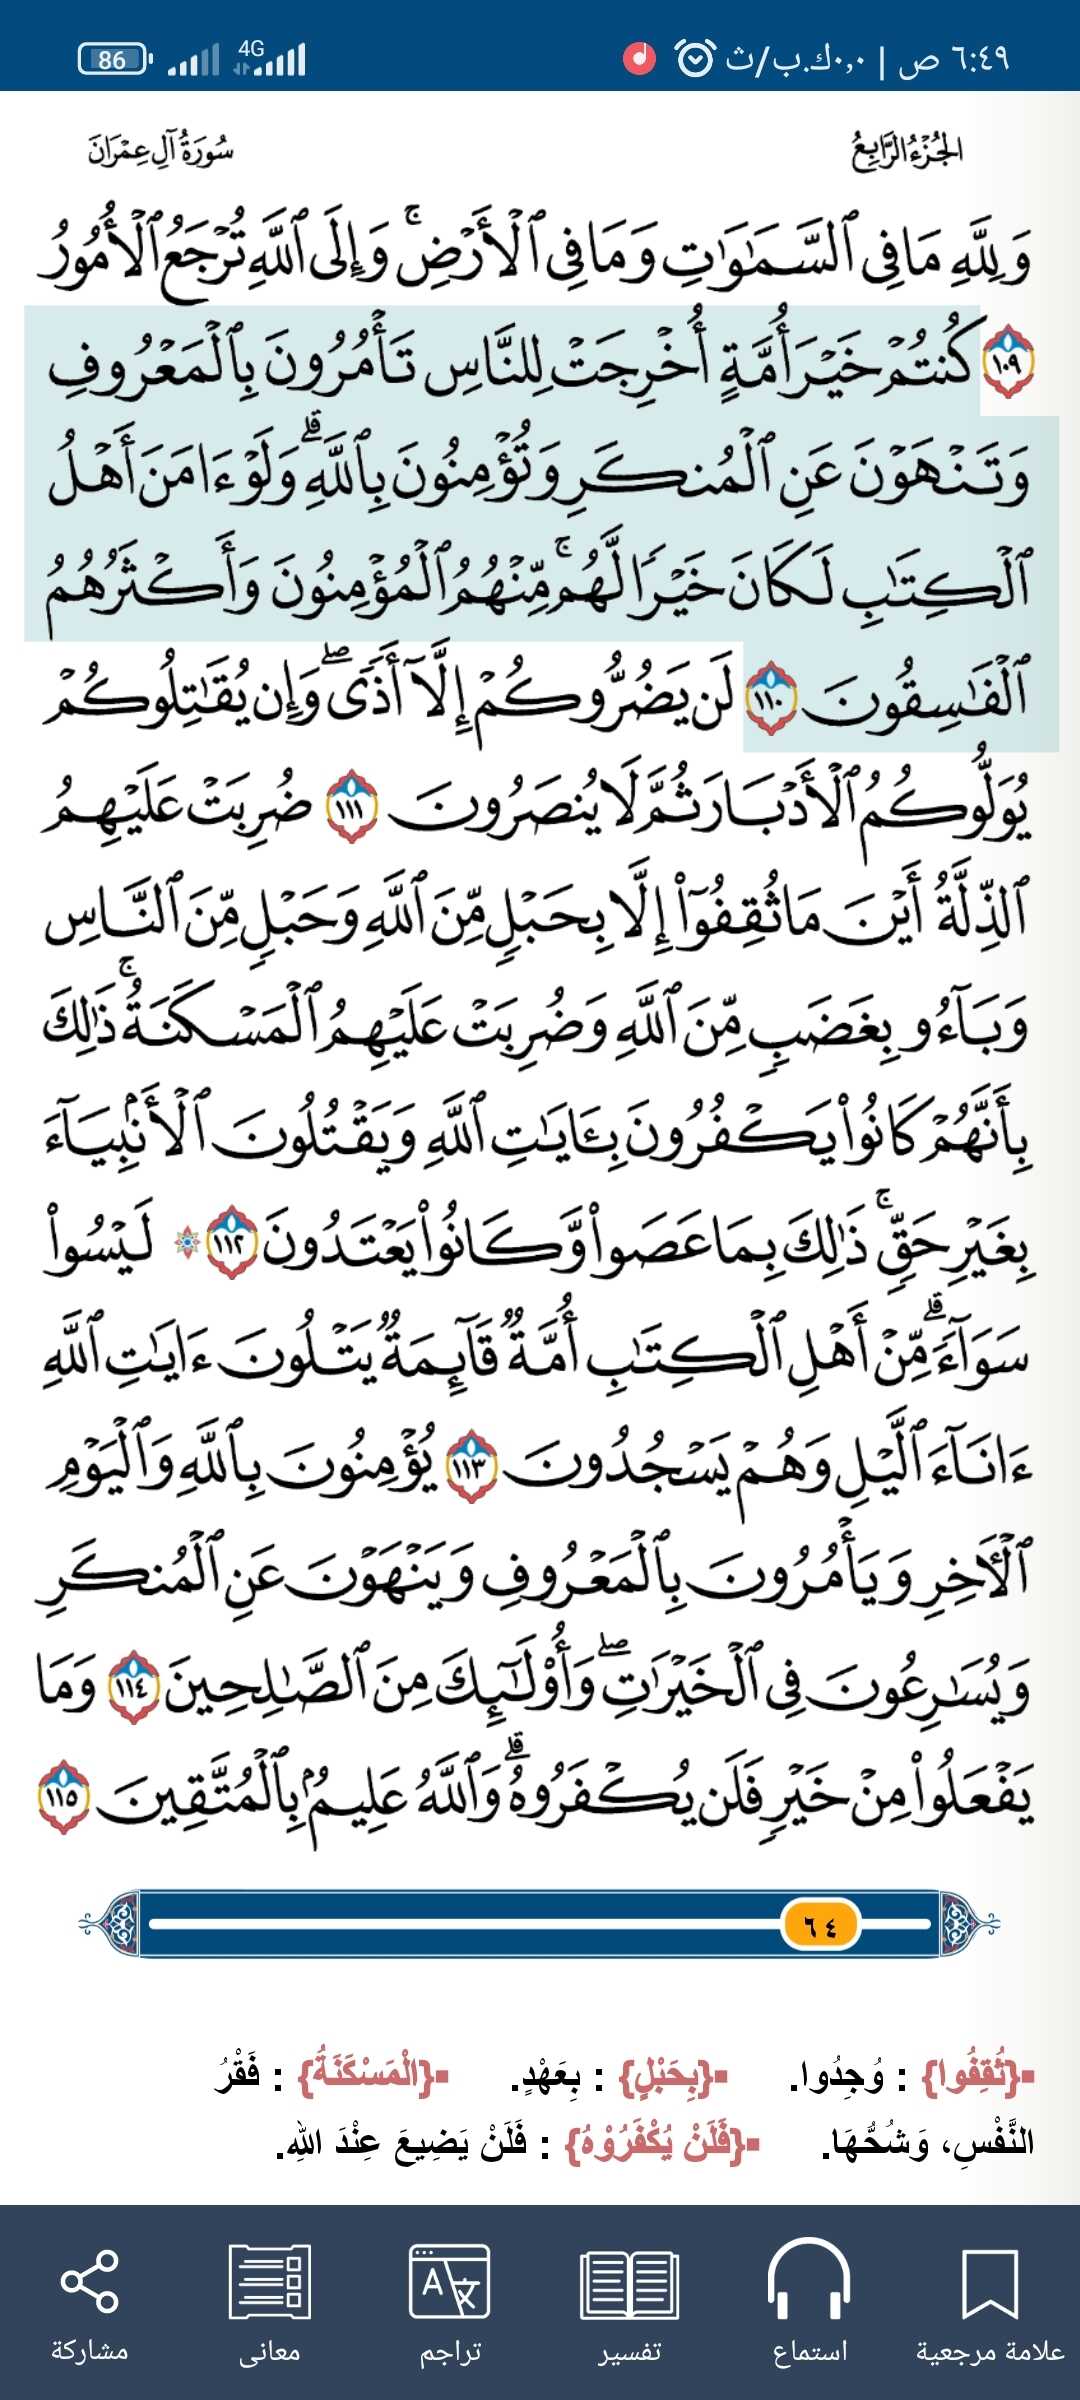 ٦:٤٩ ص | ٠,٠ك.ب/ث 4G 86
الجُزْءُ الرَّابِعُ سُورَةُ آلِ عِمْرَانَ
وَلِلَّهِ مَا فِي ٱلسَّمَٰوَٰتِ وَمَا فِي ٱلۡأَرۡضِۚ وَإِلَى ٱللَّهِ تُرۡجَعُ ٱلۡأُمُورُ
١٠٩ كُنتُمۡ خَيۡرَ أُمَّةٍ أُخۡرِجَتۡ لِلنَّاسِ تَأۡمُرُونَ بِٱلۡمَعۡرُوفِ
وَتَنۡهَوۡنَ عَنِ ٱلۡمُنكَرِ وَتُؤۡمِنُونَ بِٱللَّهِۗ وَلَوۡ ءَامَنَ أَهۡلُ
ٱلۡكِتَٰبِ لَكَانَ خَيۡرٗا لَّهُمۚ مِّنۡهُمُ ٱلۡمُؤۡمِنُونَ وَأَكۡثَرُهُمُ
ٱلۡفَٰسِقُونَ ١١٠ لَن يَضُرُّوكُمۡ إِلَّآ أَذٗىۖ وَإِن يُقَٰتِلُوكُمۡ
يُوَلُّوكُمُ ٱلۡأَدۡبَارَ ثُمَّ لَا يُنصَرُونَ ١١١ ضُرِبَتۡ عَلَيۡهِمُ
ٱلذِّلَّةُ أَيۡنَ مَا ثُقِفُوٓاْ إِلَّا بِحَبۡلٖ مِّنَ ٱللَّهِ وَحَبۡلٖ مِّنَ ٱلنَّاسِ
وَبَآءُو بِغَضَبٖ مِّنَ ٱللَّهِ وَضُرِبَتۡ عَلَيۡهِمُ ٱلۡمَسۡكَنَةُۚ ذَٰلِكَ
بِأَنَّهُمۡ كَانُواْ يَكۡفُرُونَ بِـَٔايَٰتِ ٱللَّهِ وَيَقۡتُلُونَ ٱلۡأَنۢبِيَآءَ
بِغَيۡرِ حَقّٖۚ ذَٰلِكَ بِمَا عَصَواْ وَّكَانُواْ يَعۡتَدُونَ ١١٢ ۞ لَيۡسُواْ
سَوَآءٗۗ مِّنۡ أَهۡلِ ٱلۡكِتَٰبِ أُمَّةٞ قَآئِمَةٞ يَتۡلُونَ ءَايَٰتِ ٱللَّهِ
ءَانَآءَ ٱلَّيۡلِ وَهُمۡ يَسۡجُدُونَ ١١٣ يُؤۡمِنُونَ بِٱللَّهِ وَٱلۡيَوۡمِ
ٱلۡأٓخِرِ وَيَأۡمُرُونَ بِٱلۡمَعۡرُوفِ وَيَنۡهَوۡنَ عَنِ ٱلۡمُنكَرِ
وَيُسَٰرِعُونَ فِي ٱلۡخَيۡرَٰتِۖ وَأُوْلَٰٓئِكَ مِنَ ٱلصَّٰلِحِينَ ١١٤ وَمَا
يَفۡعَلُواْ مِنۡ خَيۡرٖ فَلَن يُكۡفَرُوهُۗ وَٱللَّهُ عَلِيمُۢ بِٱلۡمُتَّقِينَ ١١٥
٦٤
▪{ثُقِفُوا} : وُجِدُوا. ▪{بِحَبْلٍ} : بِعَهْدٍ. ▪{الْمَسْكَنَةُ} : فَقْرُ
النَّفْسِ، وَشُحُّهَا. ▪{فَلَنْ يُكْفَرُوْهُ} : فَلَنْ يَضِيعَ عِنْدَ اللهِ.
علامة مرجعية استماع تفسير تراجم معانى مشاركة